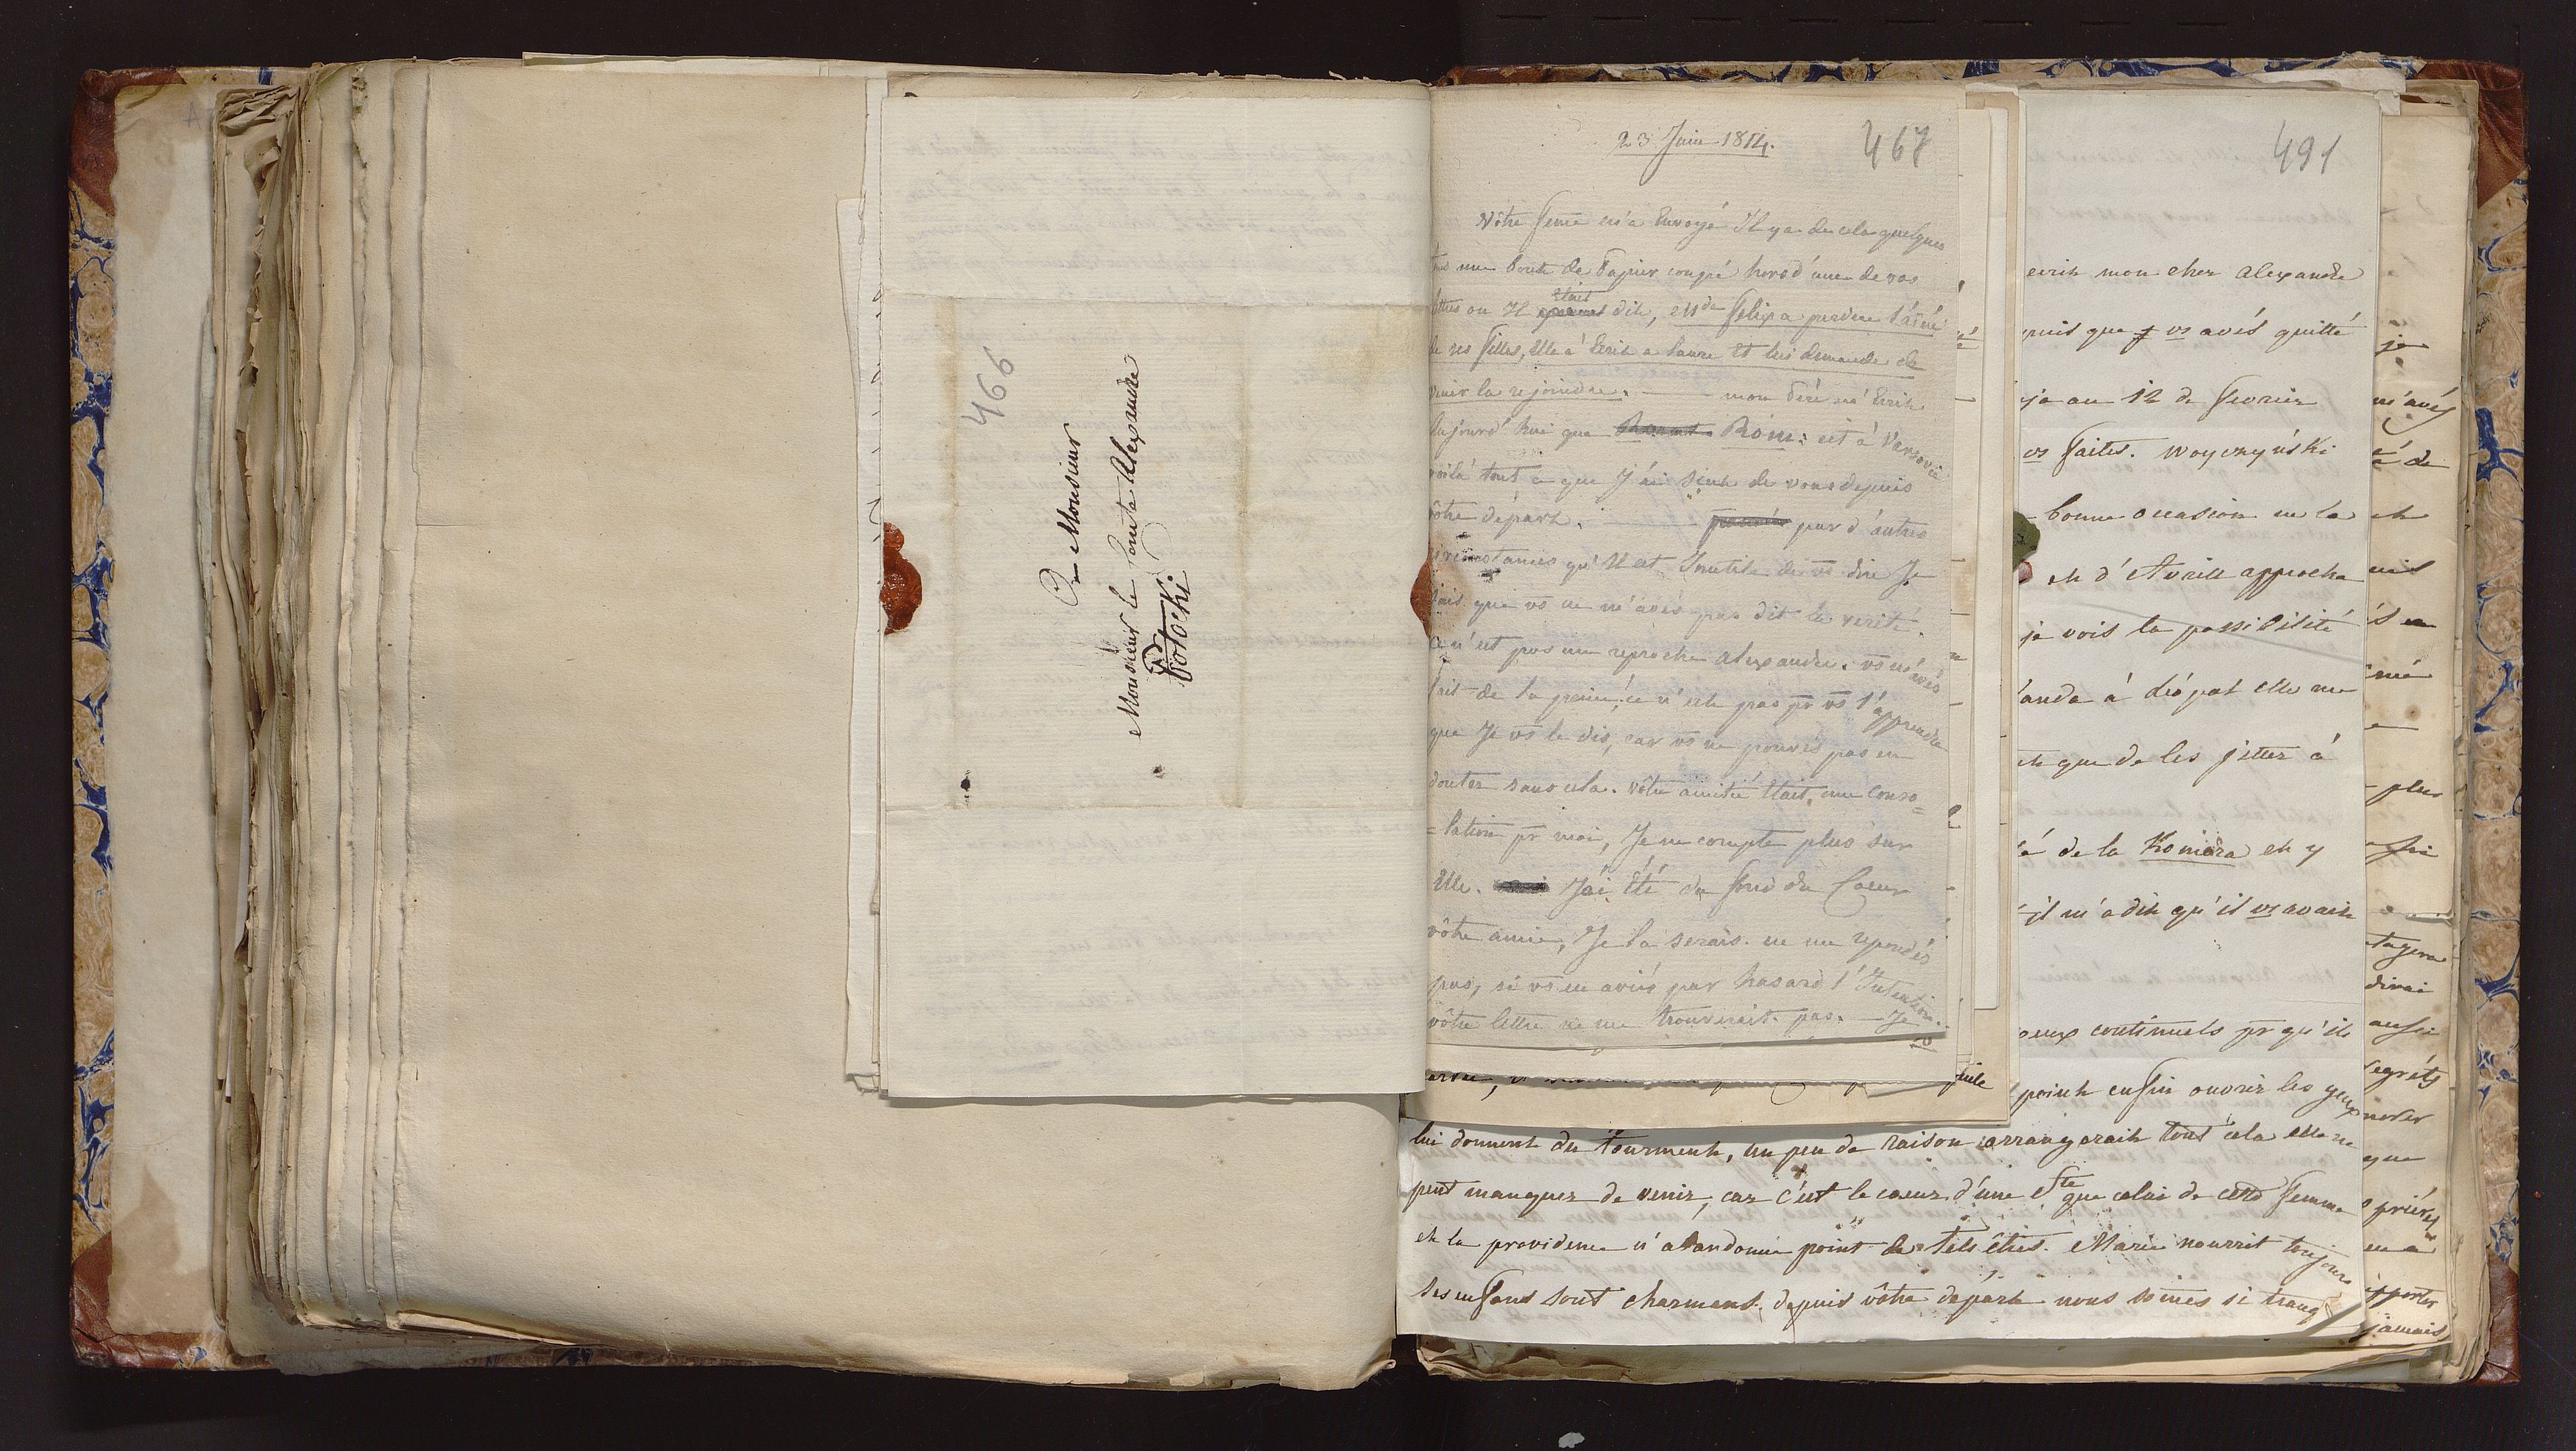 466
A Monsieur
Monsieur le Comte Alexandre
Potocki
23 Juin 1814.
467
Vôtre feme m'a Envoyé Il y a de cela quelques
une bout de Papier coupé hors d'une de vos
lettres ou Il était dit, Md Felix a perdue l'ainé
de ses filles, Elle a Ecrit a Laure Et lui demande de
venir la rejoindre. — mon Péré m'a Ecrit
aujourd'hui que Rom: est à Varsovie
voilà tout ce que J'ai sçut de vous depuis
vôtre départ. — par d'autres
circonstances qu'Il est Inutile de vs dire Je
sais que vs ne m'avés pas dit la verité.
Ce n'est pas une reproche Alexandre. vs m'avés
fait de la peine, ce n'est pas pr vs l'apprendre
que Je vs le dis, car vs ne pouvés pas en
douter sans cela. Vôtre amitié était, une Conso=
=lation pr moi, Je ne compte plus sur
Elle. J'ai Eté du fond du Coeur
vôtre amie, Je la serais. ne me repondés
pas, si vs en aviés par hasard l'Intention.
vôtre lettre ne me trouverait pas. — Je
491
ecrit mon cher Alexandre
puis que vs avés quitté
ja au 12 de fevrier
vs faites. Woyczyński
bonne occasion ne la
et d'Avrill approche
je vois la possibilité
anda à dépat elle me
et que de les jetter à
é de la Komora et y
il m'a dit qu'il vs avait
eux continuels pr qu'il
point enfin ouvrir les yeux
lui donnent du tourment, un peu de raison arrangerait tout cela elle ne
peut manquer de venir, car c'est le coeur d'une Ste que celui de cette femme
et la providence n'abandonne point de tels êtres. Marie nourrit toujours
ses enfans sont charmans, depuis vôtre départ nous somes si tranq
je
m'avés
é de
et
plus
tagera
dirai
aussi
regréts
que
priéres
pporter
jamais